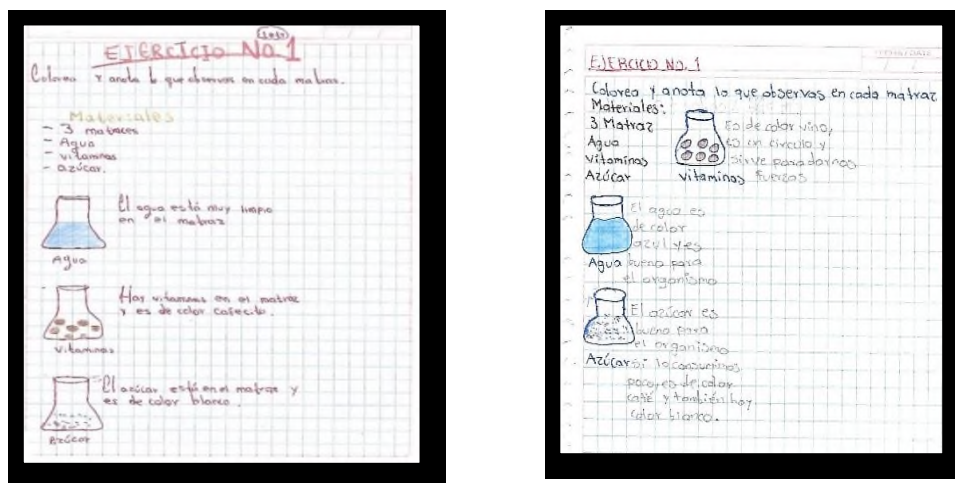 EJERCICIO NO. 1
Colorea y anota lo que observas en cada matraz.
Materiales
- 3 matraces
- Agua
- vitaminas
- azúcar.
El agua está muy limpio
en el matraz
Agua
Hay vitaminas en el matraz
y es de color cafecito.
Vitaminas
El azúcar está en el matraz y
es de color blanco.
Azúcar
EJERCICIO NO. 1
Colorea y anota lo que observas en cada matraz
Materiales:
3 Matraz
Agua
Vitaminas
Azúcar
Es de color vino,
es un circulo y
sirve para darnos
fuerzas
vitaminas
El agua es
de color
azul y es
bueno para
el organismo
Agua
El azúcar es
bueno para
el organismo
si lo consumimos
poco, es de color
café y también hay
color blanco.
Azúcar